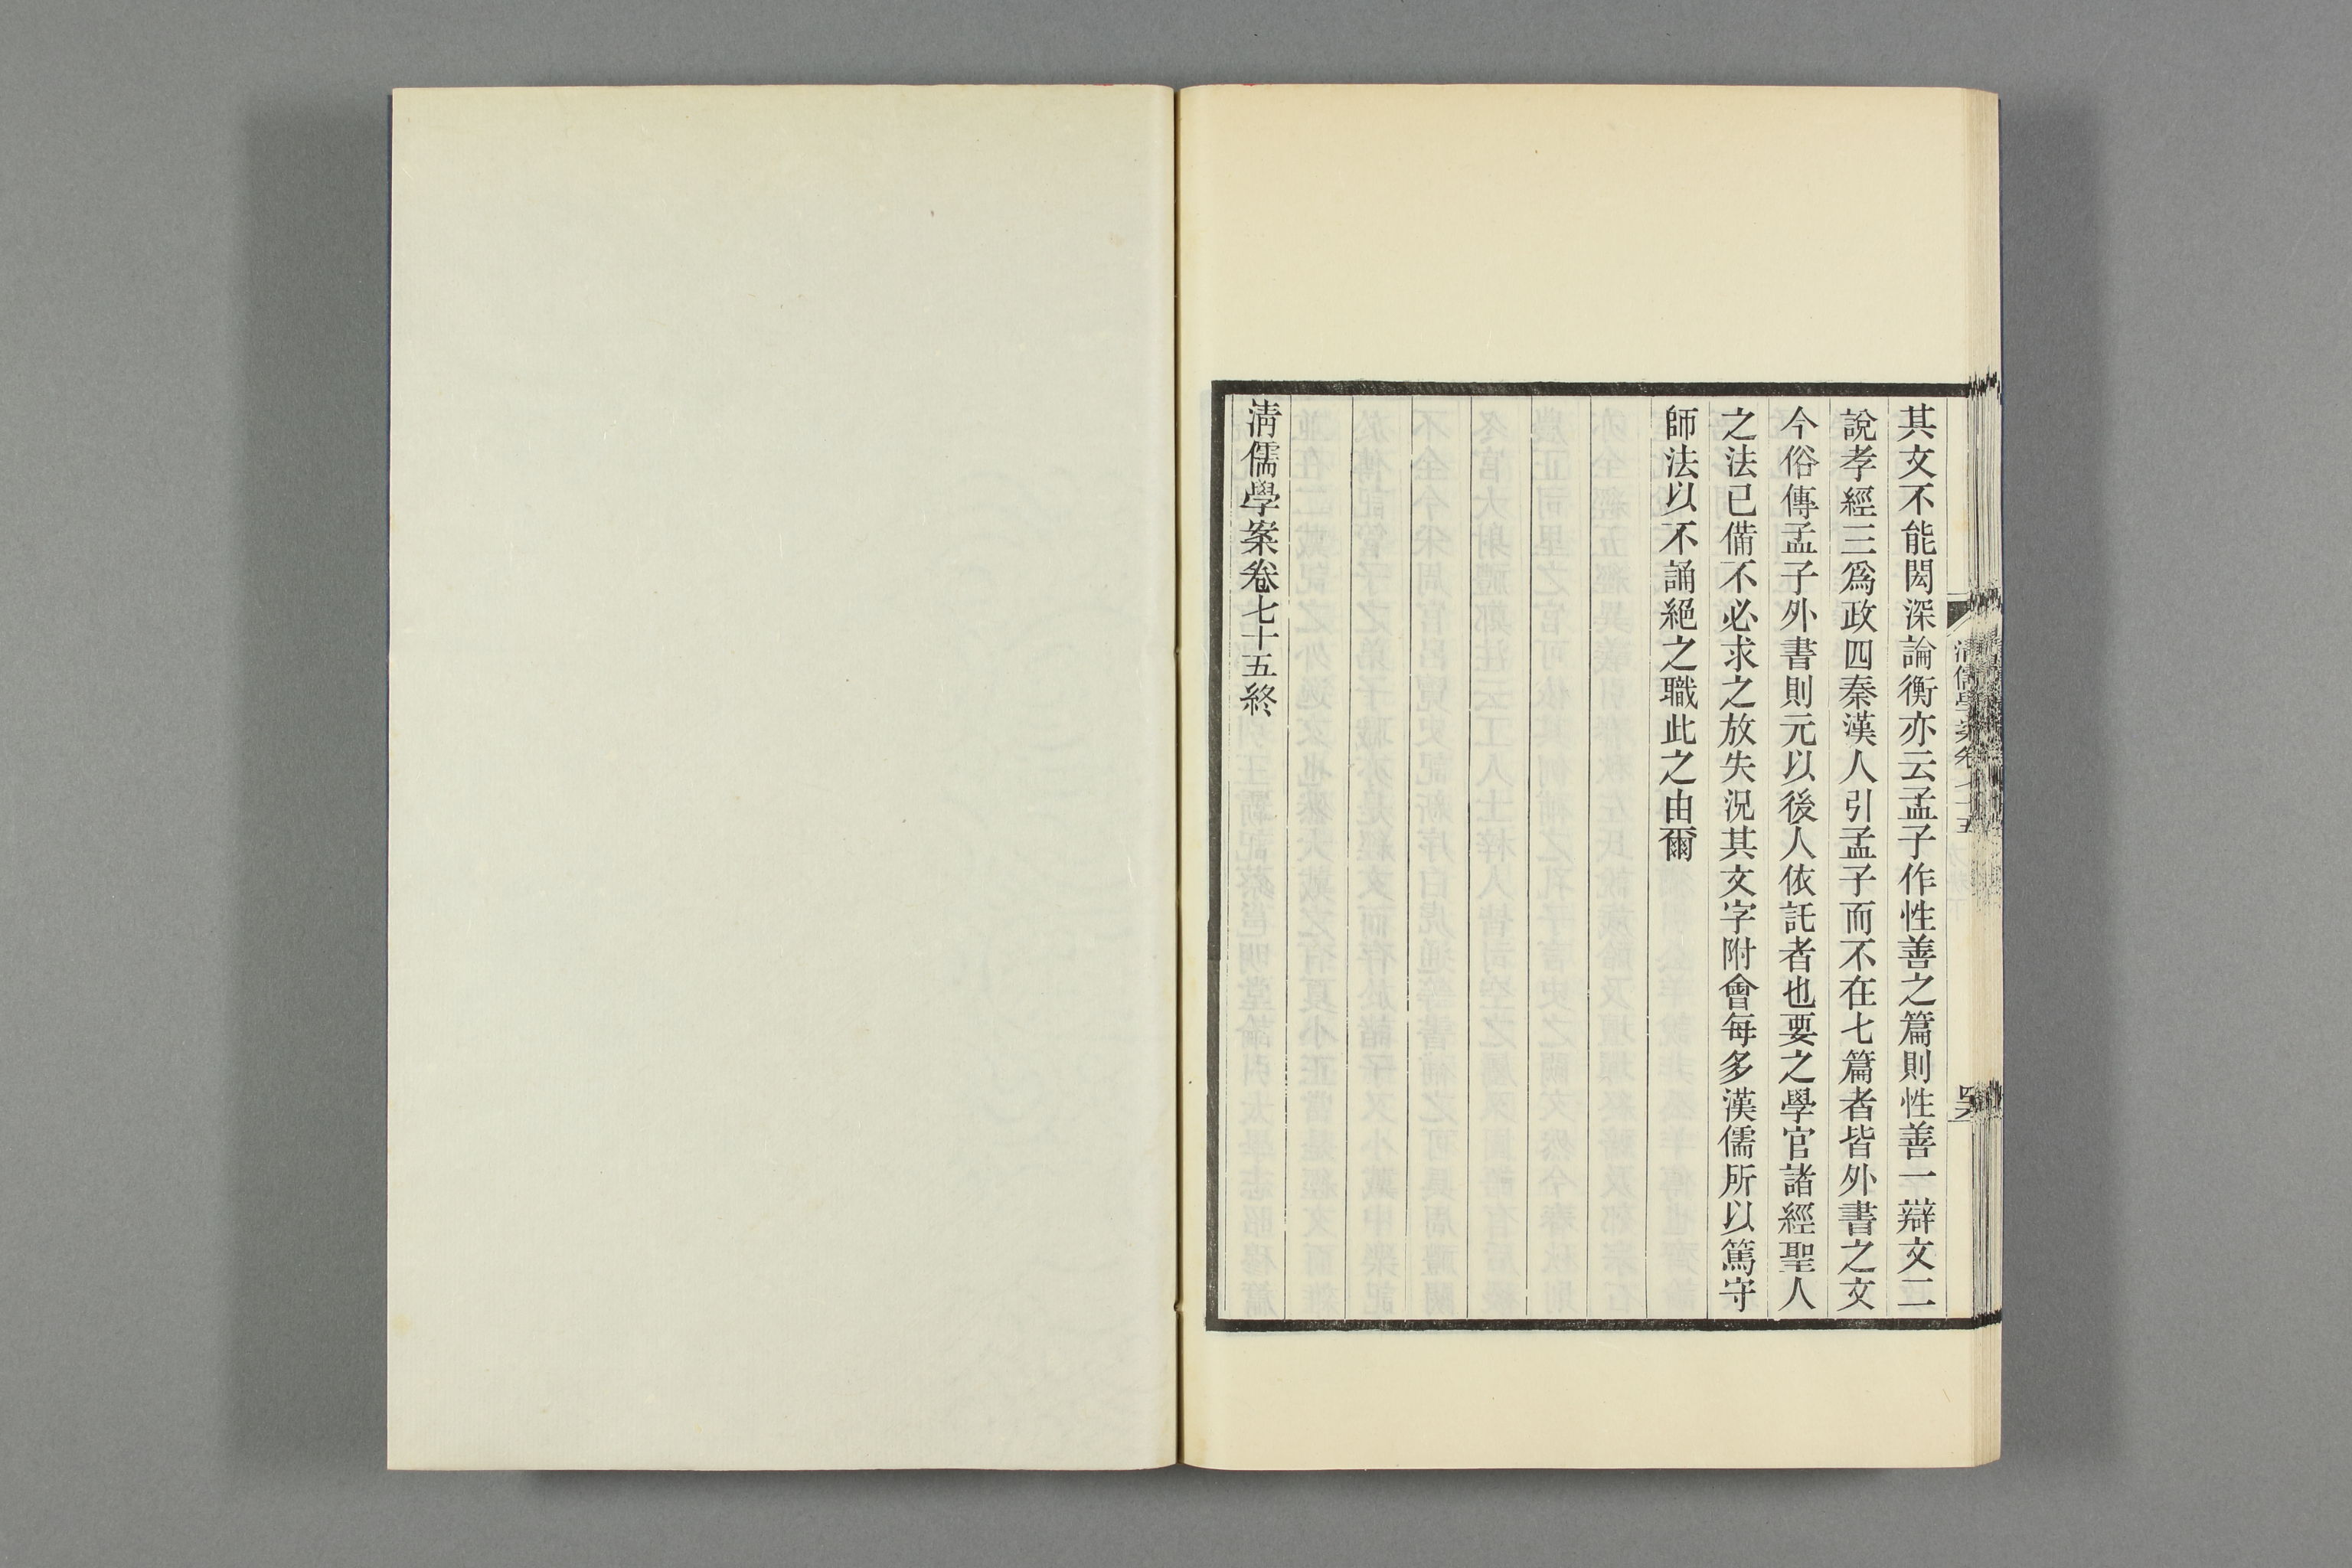 其文不能閎深論衡亦云孟子作性善之篇則性善一辯文二
說孝經三爲政四秦漢人引孟子而不在七篇者皆外書之文
今俗傳孟子外書則元以後人依託者也要之學官諸經聖人
之法已備不必求之放失況其文字附會每多漢儒所以篤守
師法以不誦絕之職此之由爾
清儒學案卷七十五終